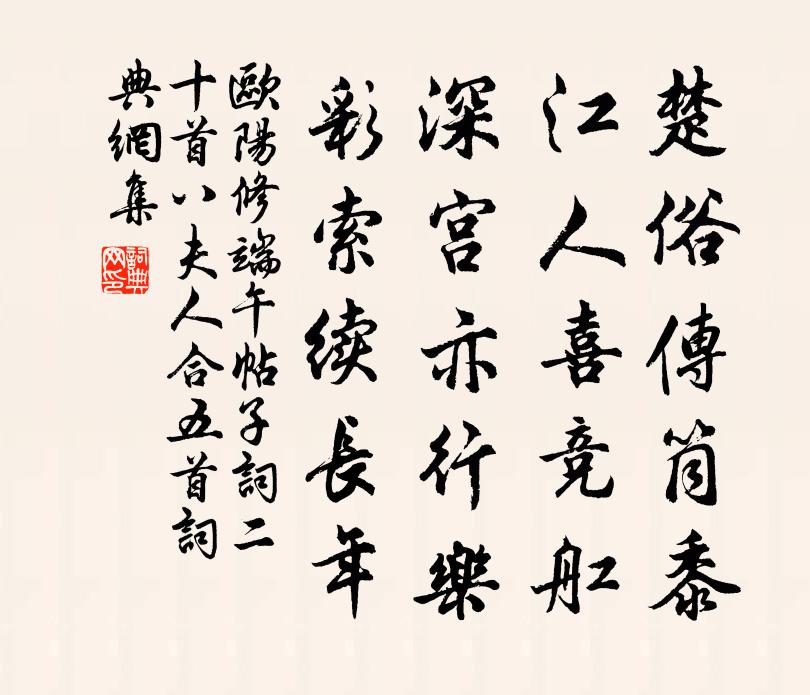 楚俗傳筒黍
江人喜竞舡
深宫亦行樂
彩索续長年
歐陽修端午帖子詞二
十首八夫人合五首詞
典網集
詞典網印